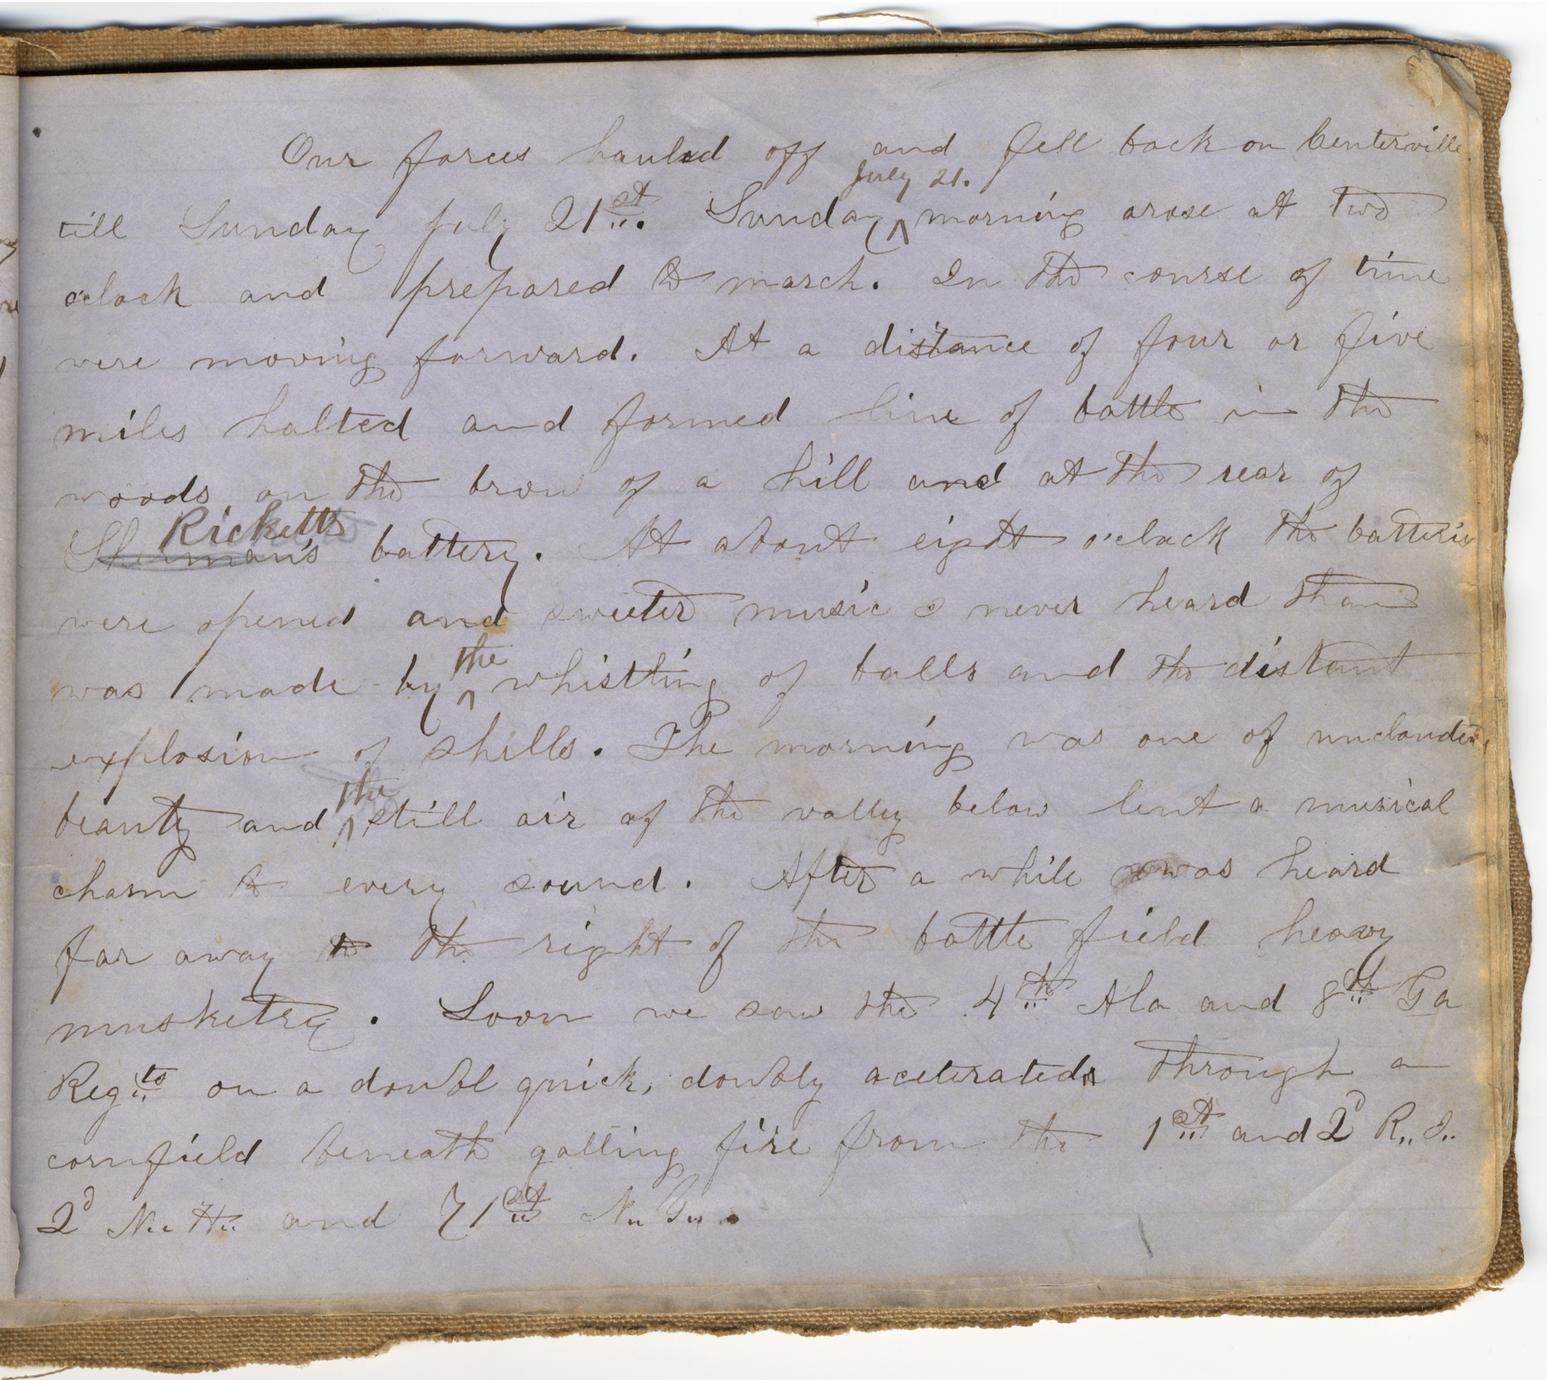 Our forces hauled off and fell back on Centerville
till Sunday July 21st. Sunday July 21. morning arose at two
oclock and prepared to march. In the course of time
were moving forward. At a distance of four or five
miles halted and formed line of battle in the
woods on the brow of a hill and at the rear of
Sherman's Ricketts battery. At about eight o'clock the batteries
were opened and sweeter music I never heard than
was made by the whistling of balls and the distant
explosion of shells. The morning was one of unclouded
beauty and the still air of the valley below lent a musical
charm to every sound. After a while was heard
far away to the right of the battle field heavy
musketry. Soon we saw the 4th Ala and 8th Ga
Regts on a doubl quick, doubly acelerated through a
cornfield beneath galling fire from the 1st and 2d R.. I..
2d N.. H.. and 71st N.. Y...